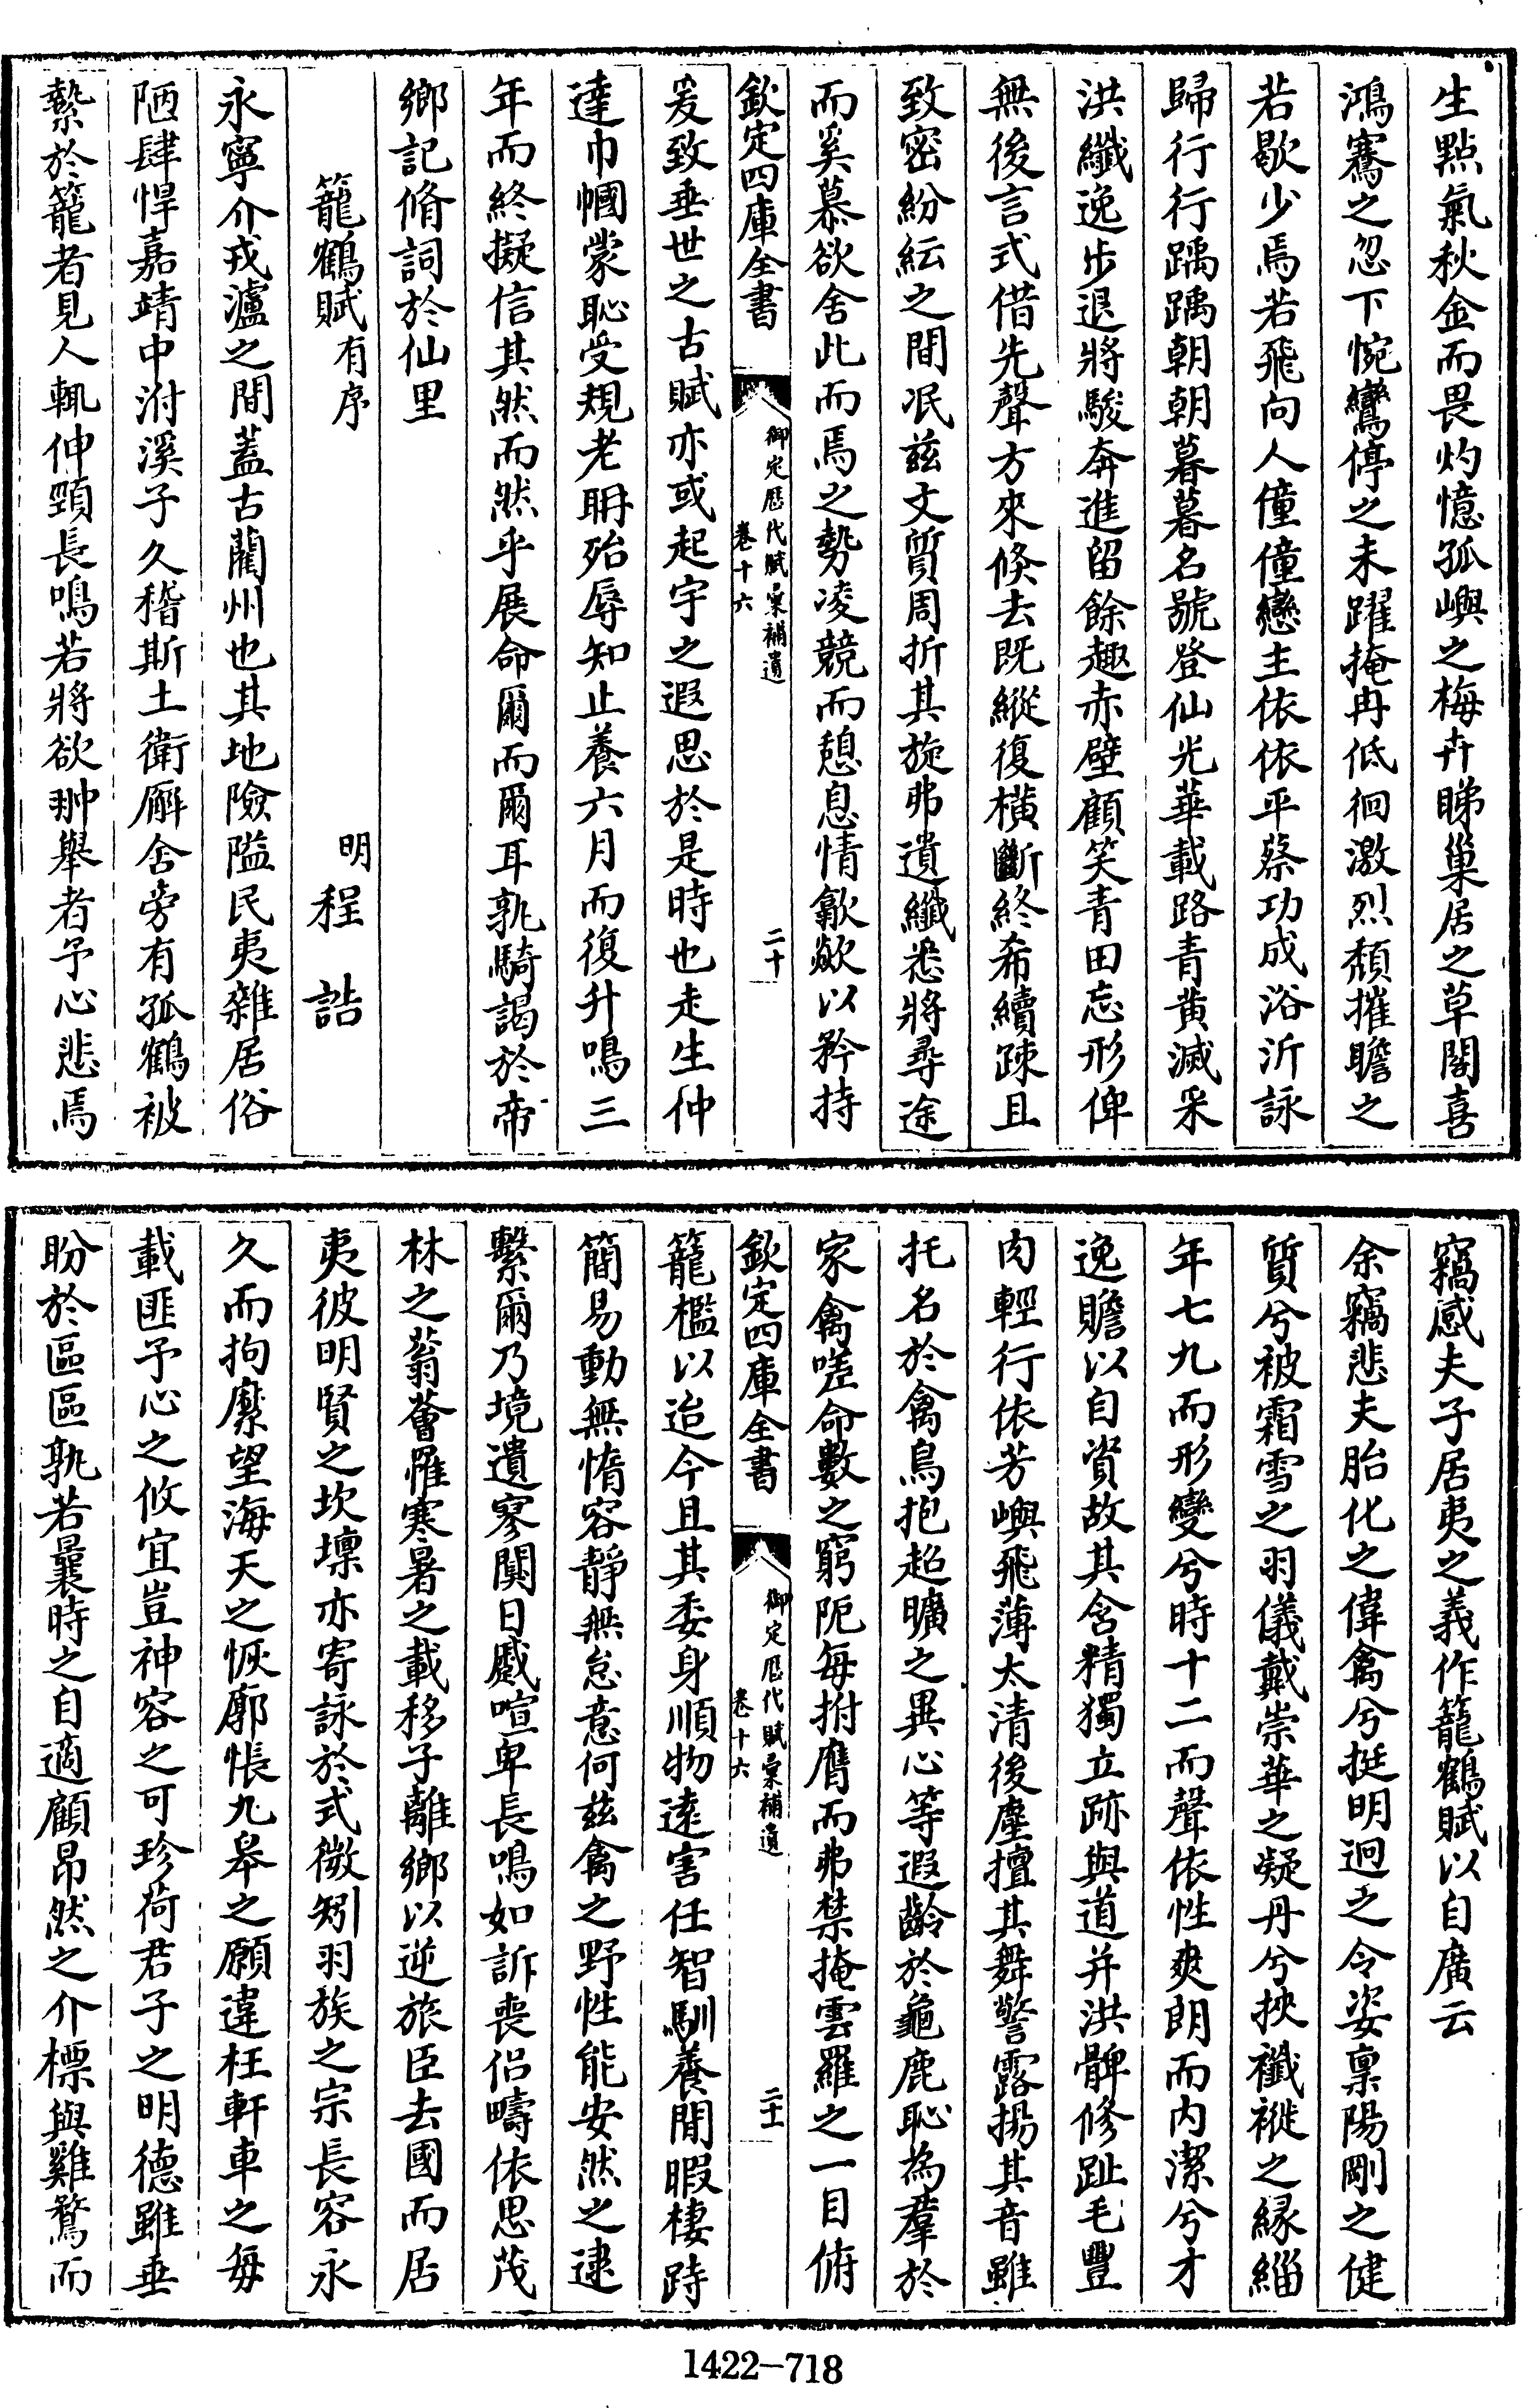 生點氣秋金而畏灼憶孤嶼之梅卉睇巢居之草閣喜
鴻騫之忽下惋鸞停之未躍掩冉低徊激烈頹摧瞻之
若歇少焉若飛向人僮僮戀主依依平蔡功成浴沂詠
歸行行踽踽朝朝暮暮名號登仙光華載路青黄滅采
洪纖逸步退將駿奔進留餘趣赤壁顧笑青田忘形俾
無後言式借先聲方來倏去既縱復橫斷終希續疎且
致密紛紜之間泯兹文質周折其旋弗遺纖悉將尋途
而奚慕欲舍此而焉之勢凌競而憩息情歙歘以矜持
欽定四庫全書
御定歴代賦彙補遺
卷十六
二十
爰致垂世之古賦亦或起宇之遐思於是時也走生仲
達巾幗蒙恥受規老聃殆辱知止養六月而復升鳴三
年而終擬信其然而然乎展命爾而爾耳孰騎謁於帝
鄉記脩詞於仙里
籠鶴賦有序
明程誥
永寧介戎瀘之間蓋古藺州也其地險隘民夷雜居俗
陋肆悍嘉靖中泭溪子久稽斯土衛廨舍旁有孤鶴被
縶於籠者見人輒伸頸長鳴若將欲翀舉者予心悲焉
竊感夫子居夷之義作籠鶴賦以自廣云
余竊悲夫胎化之偉禽兮挺明迥之令姿稟陽剛之健
質兮被霜雪之羽儀戴崇華之凝丹兮挾襳褷之緣緇
年七九而形變兮時十二而聲依性爽朗而内潔兮才
逸贍以自資故其含精獨立跡與道并洪髀修趾毛豐
肉輕行依芳嶼飛薄太清後塵擅其舞警露揚其音雖
托名於禽鳥抱超曠之異心等遐齡於龜鹿恥為羣於
家禽嗟命數之窮阨每拊膺而弗禁掩雲羅之一目俯
欽定四庫全書
御定歴代賦彙補遺
卷十六
二十一
籠檻以迨今且其委身順物遠害任智馴養閒暇棲跱
簡易動無惰容靜無怠意何兹禽之野性能安然之逮
繫爾乃境遺寥闃日戚喧卑長鳴如訴喪侣疇依思茂
林之蓊薈罹寒暑之載移子離鄉以逆旅臣去國而居
夷彼明賢之坎壈亦寄詠於式微矧羽族之宗長容永
久而拘縻望海天之恢廓悵九皋之願違枉軒車之每
載匪予心之攸宜豈神容之可珍荷君子之明德雖垂
盼於區區孰若曩時之自適顧昂然之介標與雞鶩而
1422—718